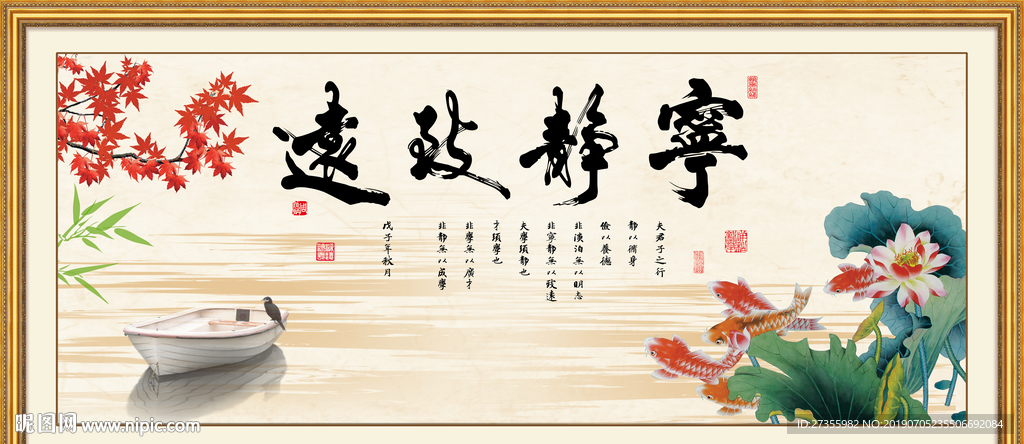 寧靜致遠
夫君子之行
靜以脩身
儉以養德
非澹泊無以明志
非寧靜無以致遠
夫學須靜也
才須學也
非學無以廣才
非靜無以成學
戊子年秋月
昵图网
www.nipic.com
ID:27355982 NO:20190705235506692084